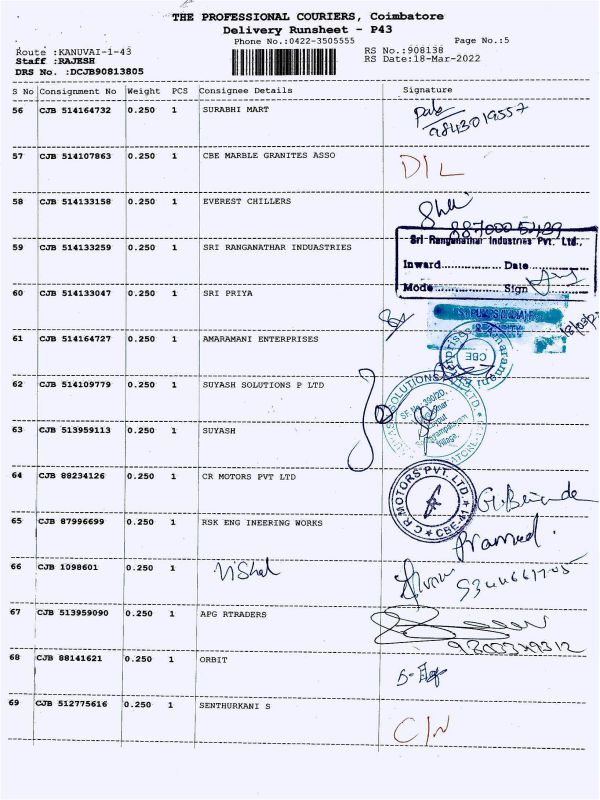 THE PROFESSIONAL COURIERS, Coimbatore
Delivery Runsheet - P43
Phone No.:0422-3505555 Page No.:5
Route :KANUVAI-1-43 RS No.:908138
Staff :RAJESH RS Date:18-Mar-2022
DRS No. :DCJB90813805
S No Consignment No Weight PCS Consignee Details Signature
56 CJB 514164732 0.250 1 SURABHI MART
9843019557
57 CJB 514107863 0.250 1 CBE MARBLE GRANITES ASSO DIL
58 CJB 514133158 0.250 1 EVEREST CHILLERS
Sri Ranganathar Industries Pvt. Ltd.,
59 CJB 514133259 0.250 1 SRI RANGANATHAR INDUASTRIES
Inward.................. Date..................
Mode.................. Sign
60 CJB 514133047 0.250 1 SRI PRIYA
61 CJB 514164727 0.250 1 AMARAMANI ENTERPRISES
CBE
62 CJB 514109779 0.250 1 SUYASH SOLUTIONS P LTD
SOLUTIONS
Village.
63 CJB 513959113 0.250 1 SUYASH
64 CJB 88234126 0.250 1 CR MOTORS PVT LTD
C R MOTORS PVT LTD. CBE-41
65 CJB 87996699 0.250 1 RSK ENG INEERING WORKS
Pramod.
66 CJB 1098601 0.250 1 Vishal
67 CJB 513959090 0.250 1 APG RTRADERS
68 CJB 88141621 0.250 1 ORBIT
69 CJB 512775616 0.250 1 SENTHURKANI S
C/N